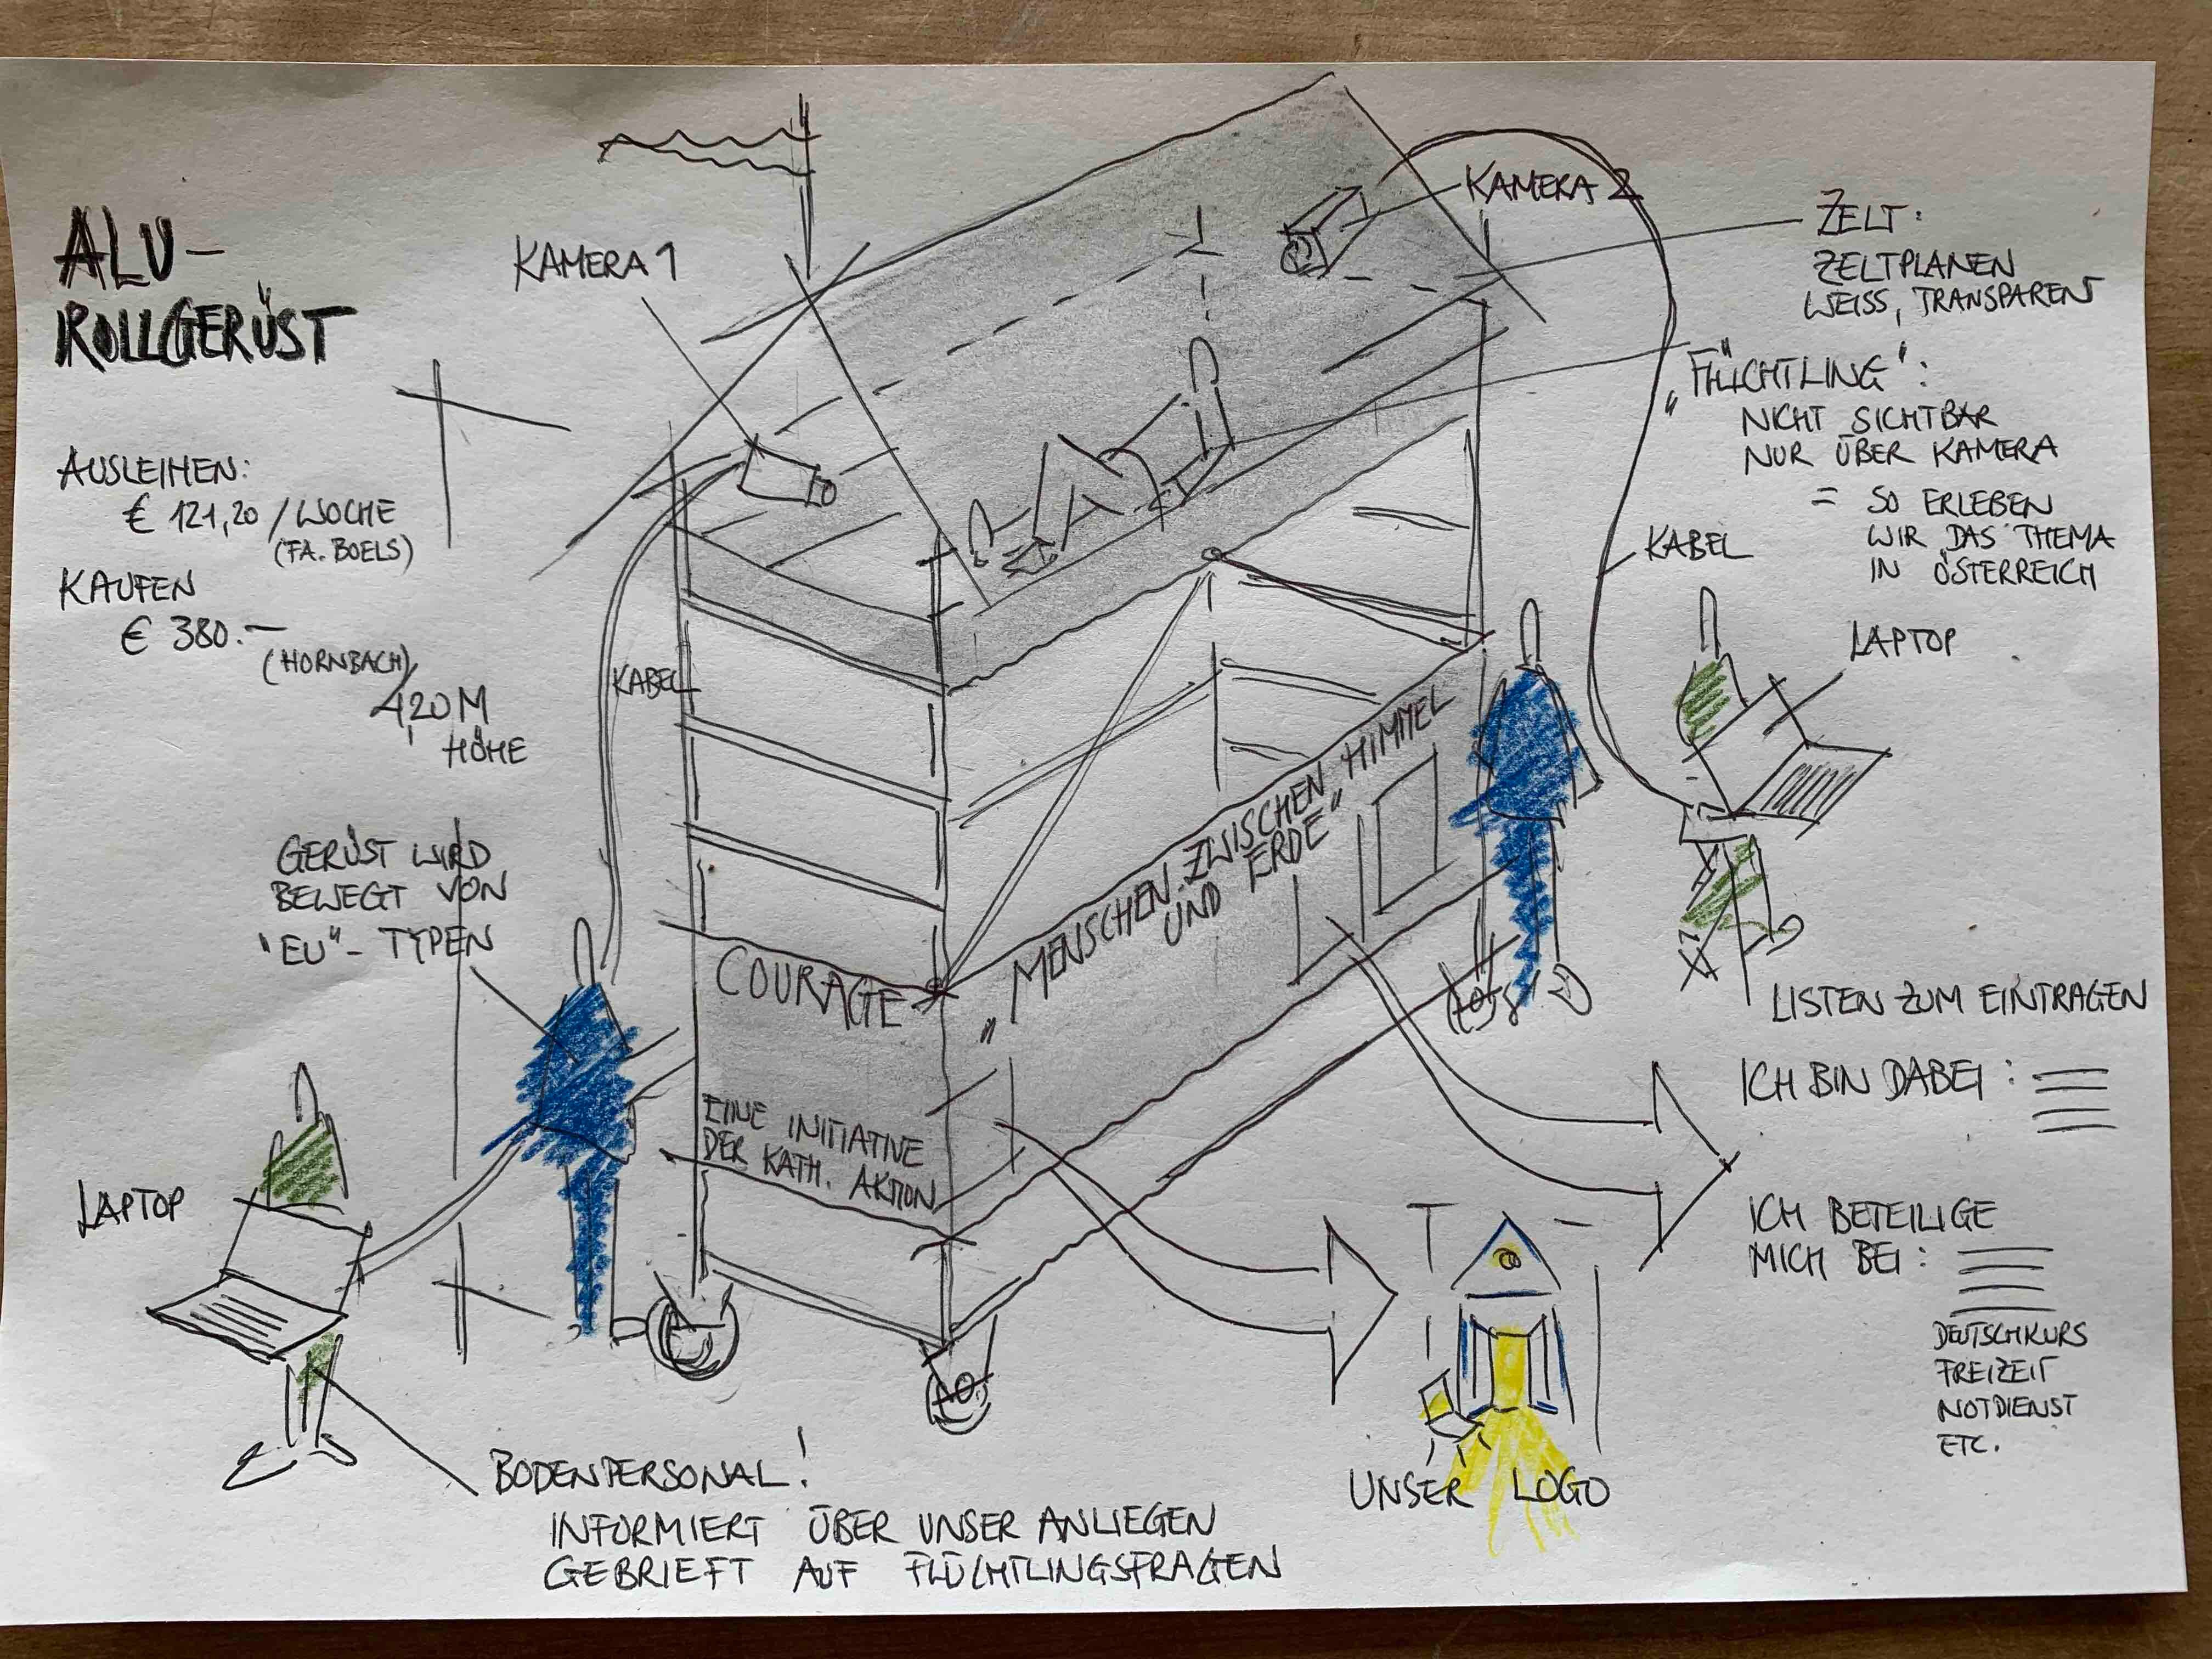 ALU-
ROLLGERÜST
AUSLEIHEN:
€ 121,20 / WOCHE
(FA. BOELS)
KAUFEN
€ 380.—
(HORNBACH)
4,20 M
HÖHE
KAMERA 1
KAMERA 2
ZELT:
ZELTPLANEN
WEISS, TRANSPARENT
„FLÜCHTLING":
NICHT SICHTBAR
NUR ÜBER KAMERA
= SO ERLEBEN
WIR DAS THEMA
IN ÖSTERREICH
KABEL
LAPTOP
KABEL
GERÜST WIRD
BEWEGT VON
"EU"- TYPEN
COURAGE
EINE INITIATIVE
DER KATH. AKTION
„MENSCHEN ZWISCHEN HIMMEL
UND ERDE"
LISTEN ZUM EINTRAGEN
ICH BIN DABEI:
ICH BETEILIGE
MICH BEI:
DEUTSCHKURS
FREIZEIT
NOTDIENST
ETC.
LAPTOP
UNSER LOGO
BODENPERSONAL!
INFORMIERT ÜBER UNSER ANLIEGEN
GEBRIEFT AUF FLÜCHTLINGSFRAGEN